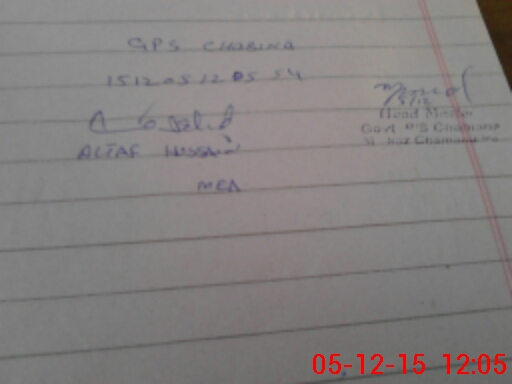 GPS CHABINA
15120512 05 54
ALTAF HUSSAIN
MEA
5/12
Head Master
Govt. P/S
05-12-15 12:05